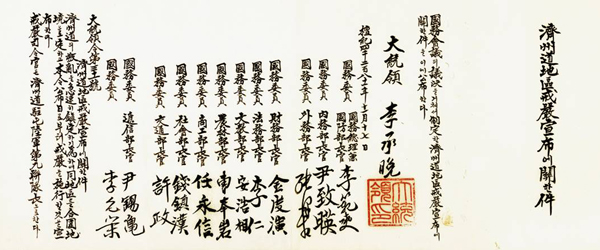 濟州道地區戒嚴宣布에關한件
國務會議의議決을經하여制定한濟州道地區戒嚴宣布에
關한件을이에公布한다
大統領 李承晩
檀紀四千二百八十一年十一月十七日
國務總理兼
國防部長官 李範奭
國務委員 內務部長官 尹致暎
國務委員 外務部長官
國務委員 財務部長官 金度演
國務委員 法務部長官 李仁
國務委員 文敎部長官 安浩相
國務委員 農林部長官
國務委員 商工部長官 任永信
國務委員 社會部長官 錢鎭漢
國務委員 交通部長官 許政
國務委員 遞信部長官 尹錫龜
國務委員 李允榮
大統領令第三十一號
濟州道地區戒嚴宣布에關한件
濟州道의叛亂을急速히鎭定하기爲하여同地區를合圍地
境으로定하고本令公布日로부터戒嚴을施行할것을宣
布한다
戒嚴司令官은濟州道駐屯陸軍第九聯隊長으로한다
大統領印